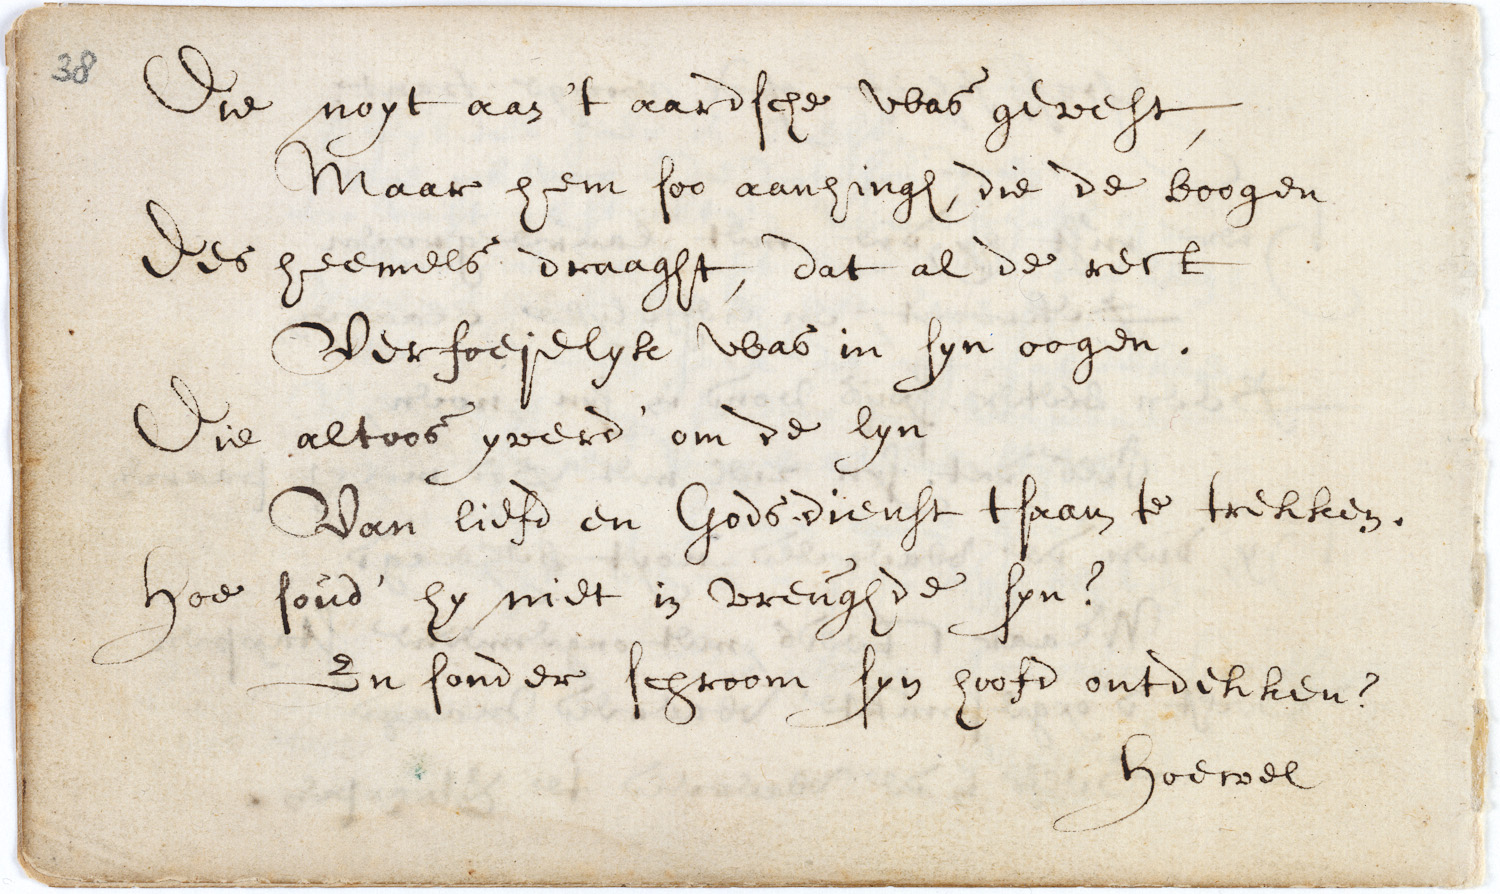 38
Die noyt aan 't aardsche was gevest,
Maar hem soo aanhingh, die de boogen
Des heemels draaght, dat al de rest
Verfoeijelyk was in syn oogen.
Die altoos yverd' om de lyn
Van liefd en Gods-dienst t saam te trekken.
Hoe soud' hy niet in vreughde syn?
En sonder schroom syn hoofd ontdekken?
Hoewel